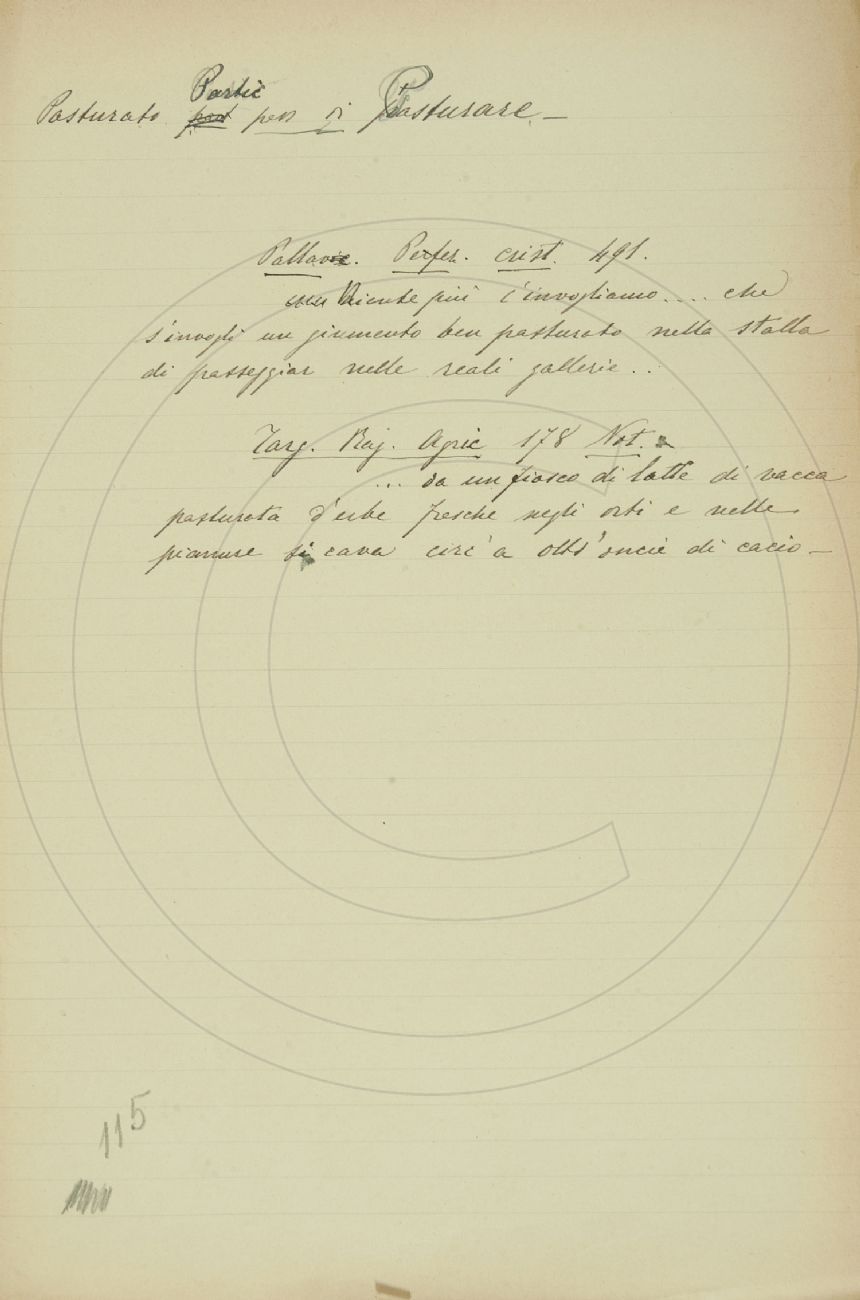 Partic
Pasturato pas di Pasturare. —
Pallavic. Perfez. crist. 491.
Niente più c'invogliamo.... che
s'invogli un giumento ben pasturato nella stalla
di passeggiar nelle reali gallerie..
Targ. Rag. Agric 178 Not.
... da un fiasco di latte di vacca
pasturata d'erbe fresche negli orti e nelle
pianure si cava circ'a ott'oncie di cacio —
115